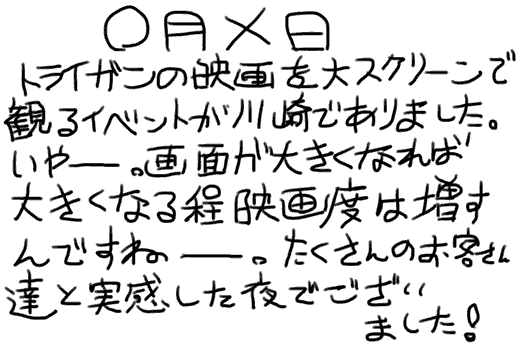 〇月×日
トライガンの映画を大スクリーンで
観るイベントが川崎でありました。
いやー。画面が大きくなれば
大きくなる程映画度は増す
んですねー。たくさんのお客さん
達と実感した夜でござい
ました!